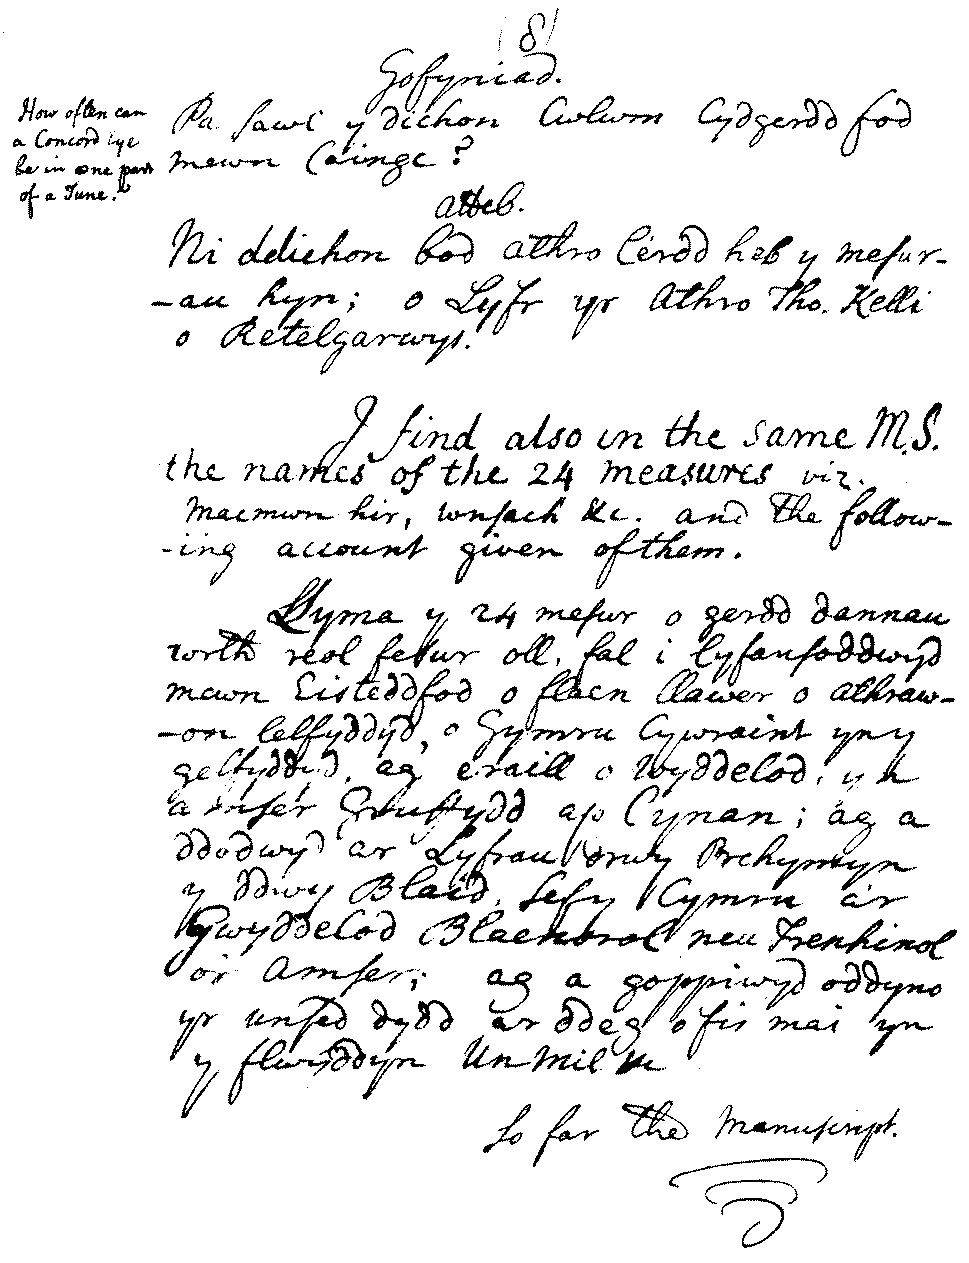 8
Gofyniad.
How often can
a Concord lye
be in one part
of a Tune.
Pa sawl y dichon Cwlwm Cydgerdd fod
mewn Cainge?
Atteb.
Ni ddichon bod athro Cerdd heb y mesur-
-au hyn; o Lyfr yr Athro Tho. Kelli
o Retelgarwys.
I find also in the same M.S.
the names of the 24 measures viz.
Macmwn hir, wnsach &c. and the follow-
-ing account given of them.
Llyma y 24 mesur o gerdd dannau
wrth reol fesur oll, fal i
mewn Eisteddfod o flaen llawer o athraw-
-on Celfyddyd, o Gymru Cywraint yn y
gelfyddyd, ag eraill o Wyddelod, yn
amser Gruffydd ap Cynan; ag a
ddodwyd ar Lyfrau drwy
y ddwy Blaid, sef y Cymru a'r
Gwyddelod neu Frenhinol
o'r Amser; ag a goppiwyd oddyno
yr unfed dydd ar ddeg o fis mai yn
y flwyddyn Un Mil
So far the Manuscript.